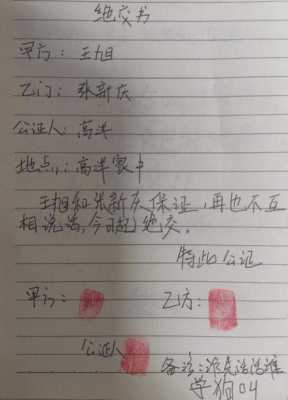 绝交书
甲方：王旭
乙方：张新庆
公证人：高洋
地点：高洋家中
王旭和张新庆保证，再也不互
相说话，今日起绝交。
特此公证
甲方：
乙方：
公证人
备注：谁先说话谁
学狗叫